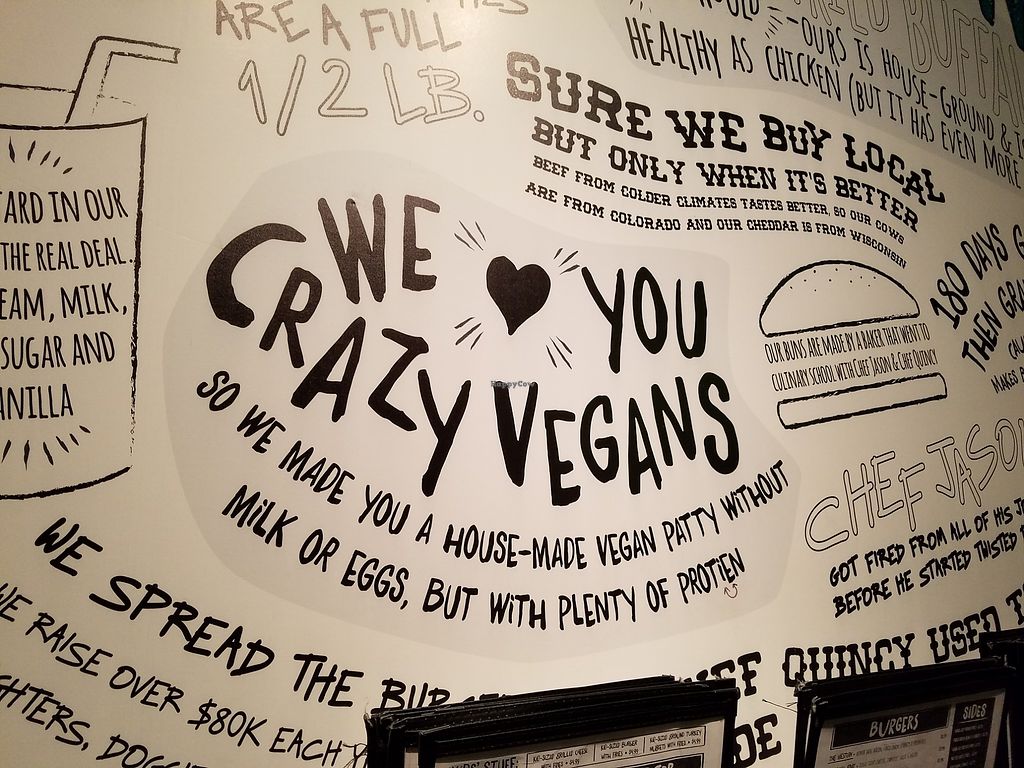 ARE A FULL
1/2 LB.
OURS IS HOUSE-GROUND &
HEALTHY AS CHICKEN (BUT IT HAS EVEN MORE
SURE WE BUY LOCAL
BUT ONLY WHEN IT'S BETTER
BEEF FROM COLDER CLIMATES TASTES BETTER, SO OUR COWS
ARE FROM COLORADO AND OUR CHEDDAR IS FROM WISCONSIN
IN OUR
THE REAL DEAL
MILK,
SUGAR AND
WE ♥ YOU
CRAZY VEGANS
SO WE MADE YOU A HOUSE-MADE VEGAN PATTY WITHOUT
MILK OR EGGS, BUT WITH PLENTY OF PROTIEN
HappyCow
OUR BUNS ARE MADE BY A BAKER THAT WENT TO
CULINARY SCHOOL WITH CHEF JASON & CHEF QUINCY
180 DAYS
THEN
CHEF JASON
GOT FIRED FROM ALL OF HIS
BEFORE HE STARTED TWISTED
WE SPREAD THE
WE RAISE OVER $80K EACH
QUINCY USED
KIDS' STUFF:
KID-SIZED GRILLED CHEESE
WITH FRIES • $4.99
KID-SIZED BURGER
WITH FRIES • $4.99
KID-SIZED GROUND TURKEY
NUGGETS WITH FRIES • $4.99
BURGERS
SIDES